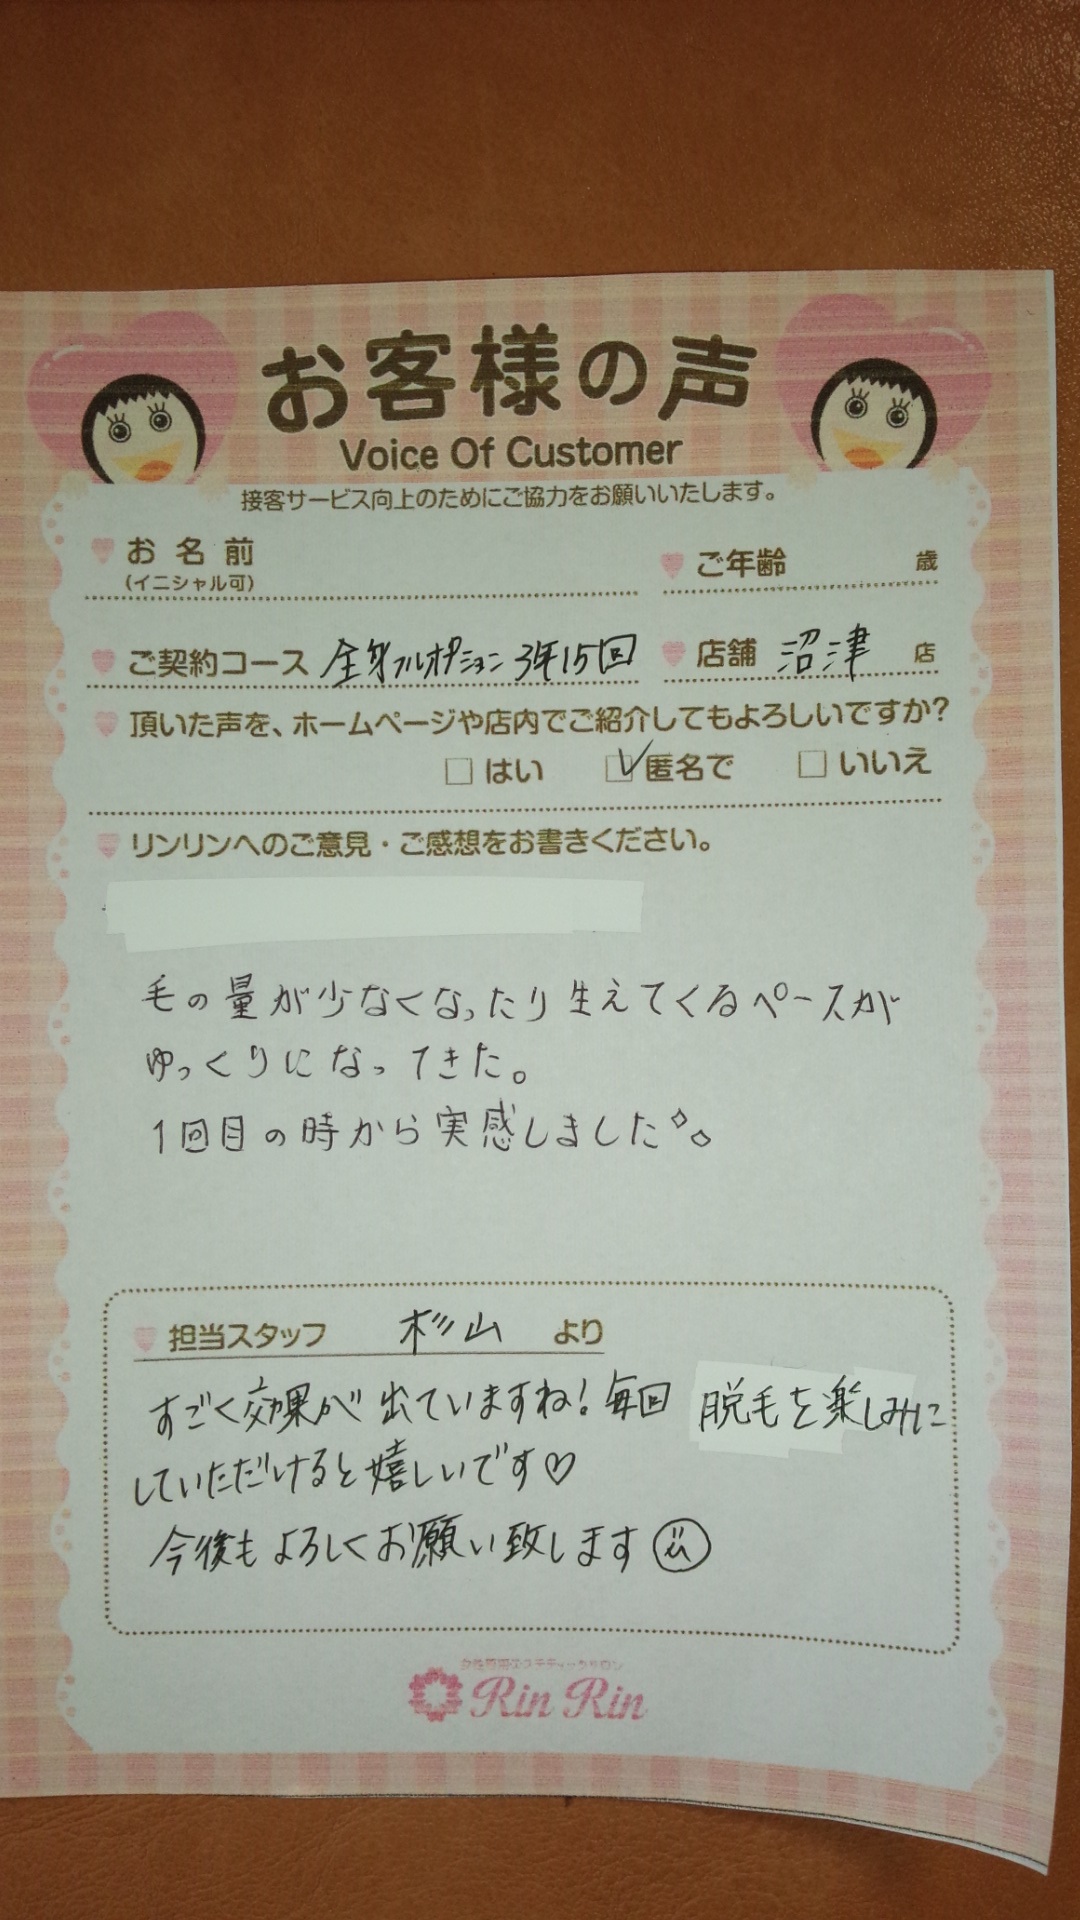 お客様の声
Voice Of Customer
接客サービス向上のためにご協力をお願いいたします。
お名前 ご年齢 歳
(イニシャル可)
ご契約コース 全身フルオプション 3年15回 店舗 沼津 店
頂いた声を、ホームページや店内でご紹介してもよろしいですか?
はい 匿名で いいえ
リンリンへのご意見・ご感想をお書きください。
毛の量が少なくなったり生えてくるペースが
ゆっくりになってきた。
1回目の時から実感しました。
担当スタッフ 杉山 より
すごく効果が出ていますね!毎回 脱毛を楽しみに
していただけると嬉しいです♡
今後もよろしくお願い致します
女性専用エステティックサロン
Rin Rin